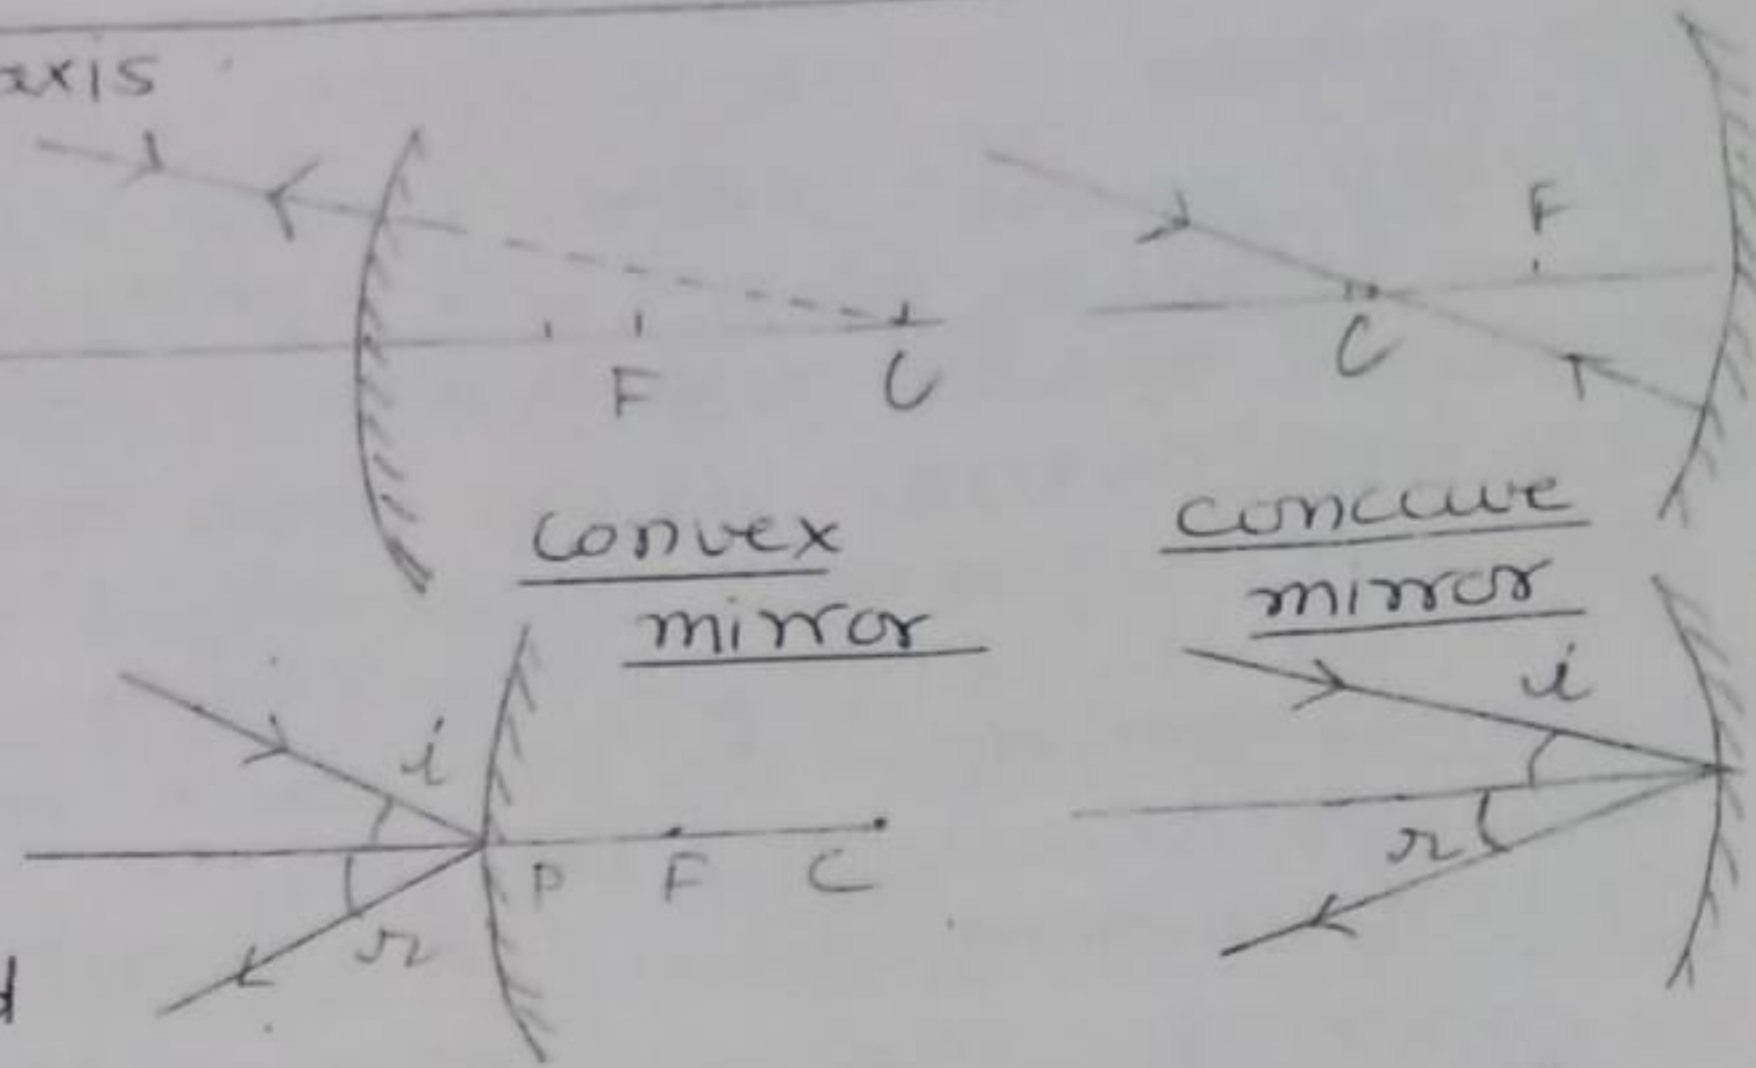 axis
F
C
F
C
convex
mirror
concave
mirror
i
r
P
F
C
i
r